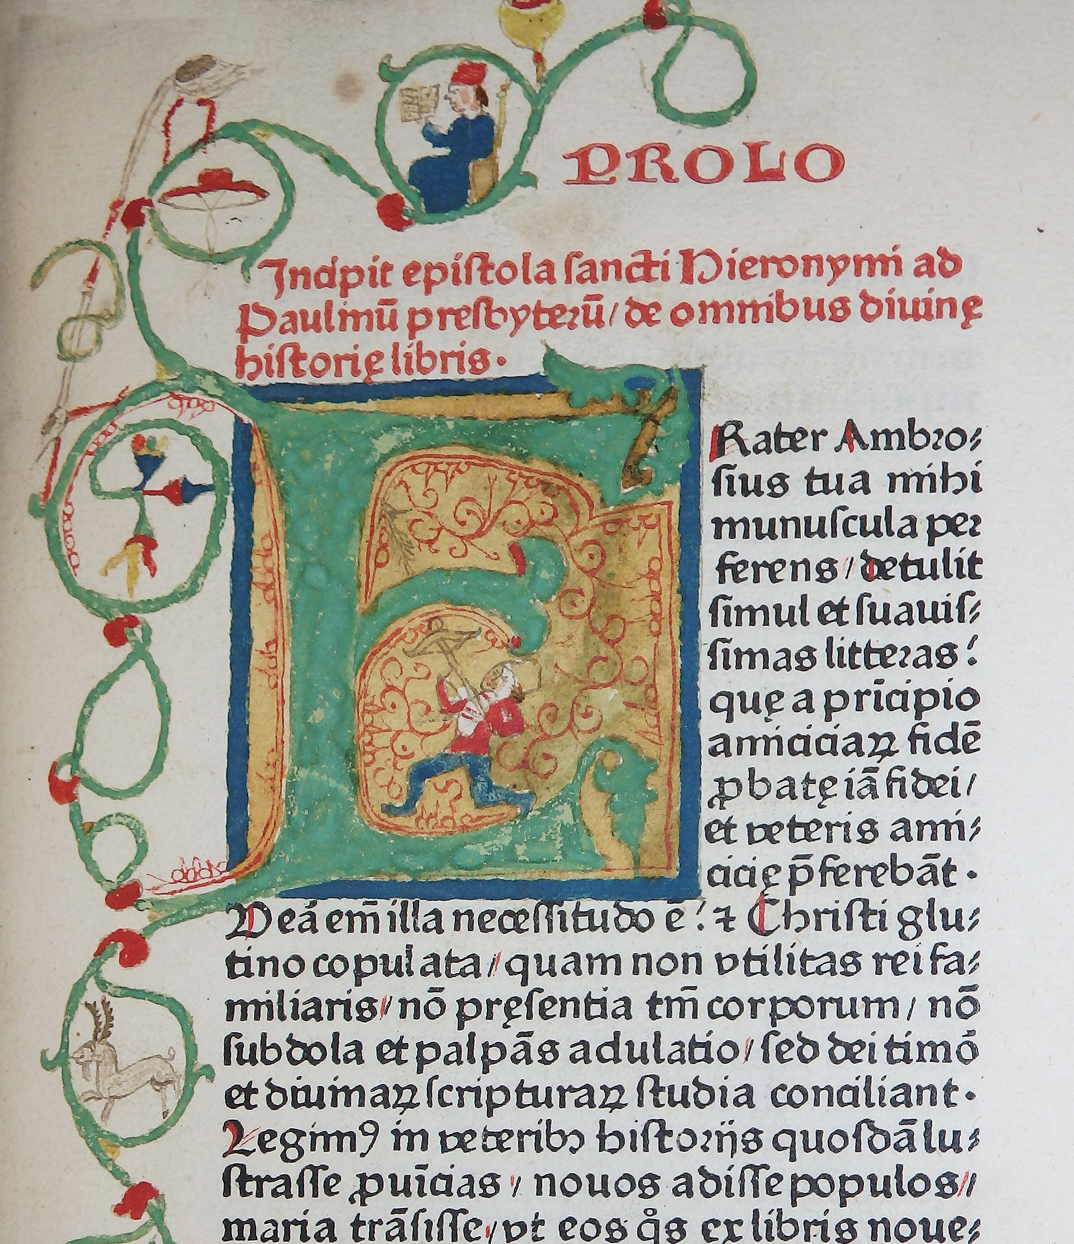 PROLO
Incipit epiſtola ſancti Hieronymi ad
Paulinū preſbyteꝛū/ de omnibus diuinę
hiſtorię libris.
FRater Ambꝛo⸗
ſius tua mihi
munuſcula per
ferens/ detulit
simul et ſuauiſ⸗
ſimas litteꝛas:
quę a prīcipio
amiciciaꝝ fidē
ꝓbatę iā fidei/
et veteris ami⸗
cicię p̄ferebāt.
Veā em̄ illa neceſſitudo ē: ⁊ Chriſti glu⸗
tino copulata/ quam non vtilitas rei fa⸗
miliaris/ nō pręſentia tm̄ corporum/ nō
ſubdola et palpās adulatio/ ſed dei timō
et diuinaꝝ ſcripturaꝝ ſtudia conciliant.
Legimꝰ in veteribꝫ hiſtoꝛijs quoſdā lu⸗
ſtraſſe ꝓuīcias/ nouos adiſſe populos/
maria trāſiſſe/ vt eos q̊s ex libris noue⸗